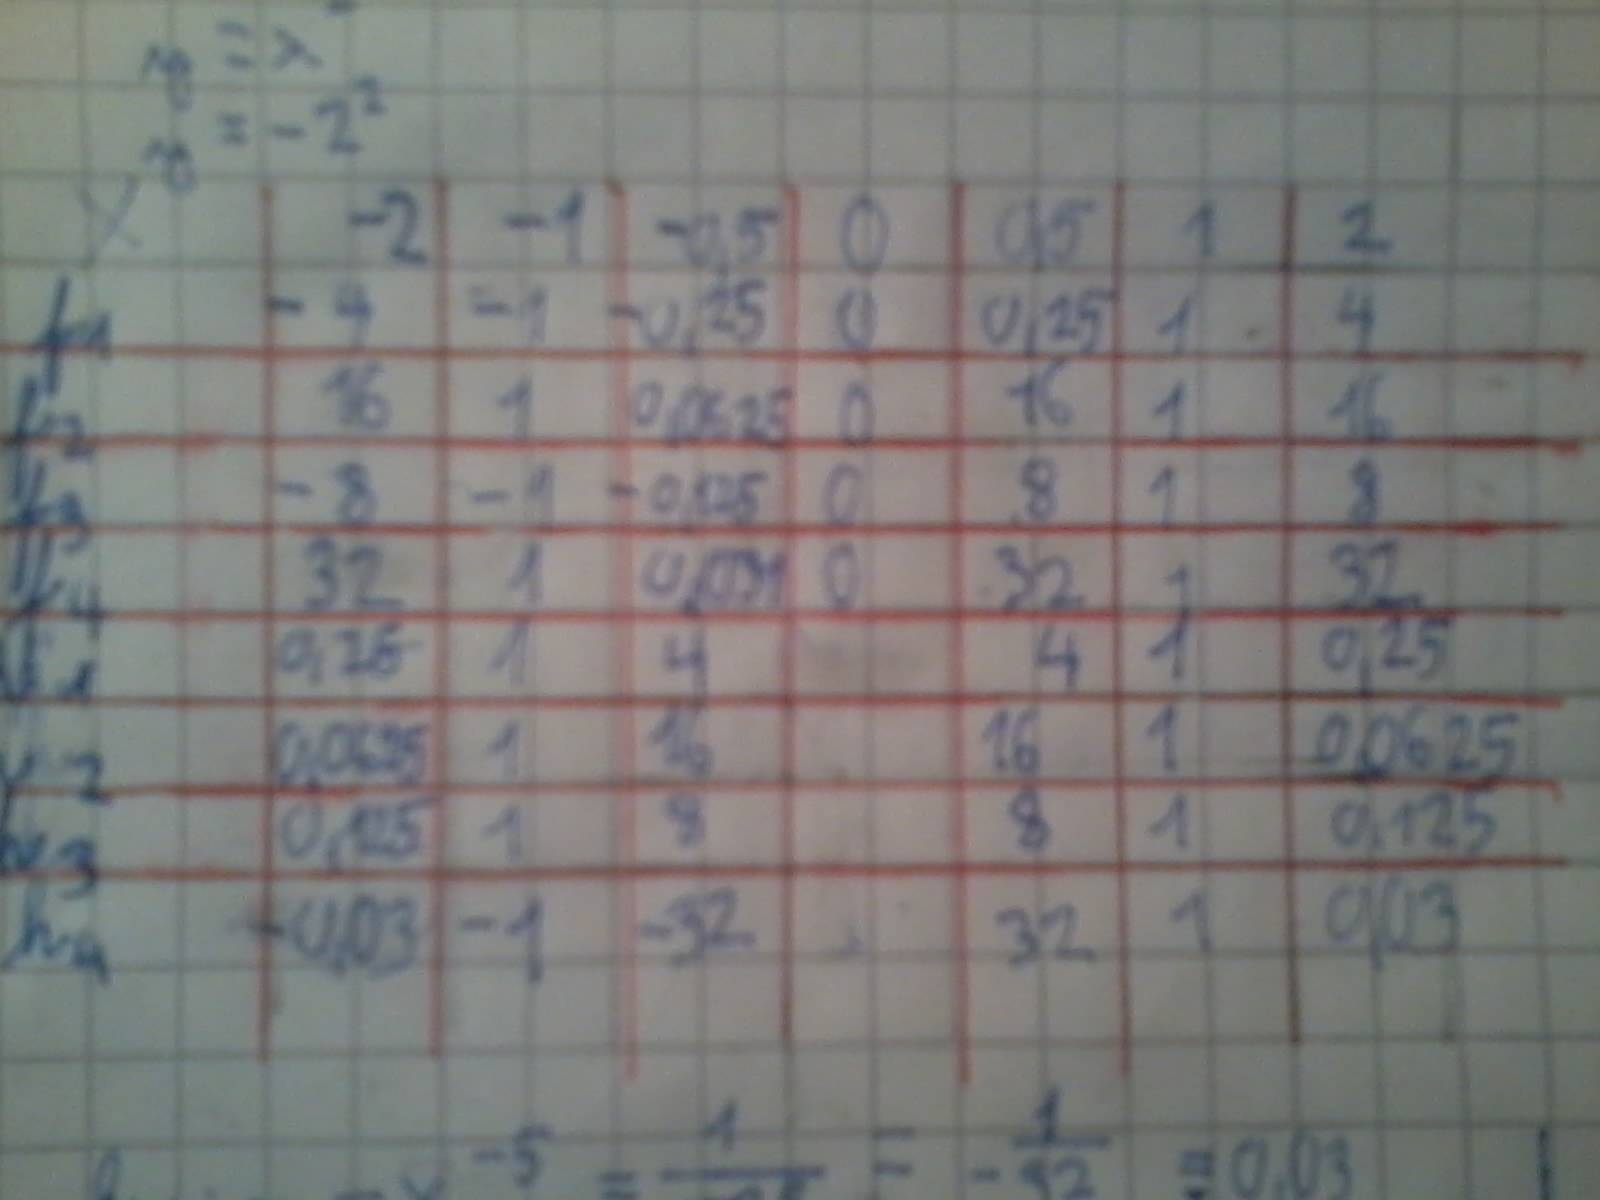 y = x
y = -2²
X -2 -1 -0,5 0 0,5 1 2
f1 -4 -1 -0,25 0 0,25 1 4
f2 16 1 0,0625 0 16 1 16
f3 -8 -1 -0,125 0 8 1 8
f4 32 1 0,031 0 32 1 32
1 0,25 1 4 4 1 0,25
2 0,0625 1 16 16 1 0,0625
3 0,125 1 8 8 1 0,125
h4 -0,03 -1 -32 32 1 0,03
= x⁻⁵ = 1 = - 1/32 = 0,03